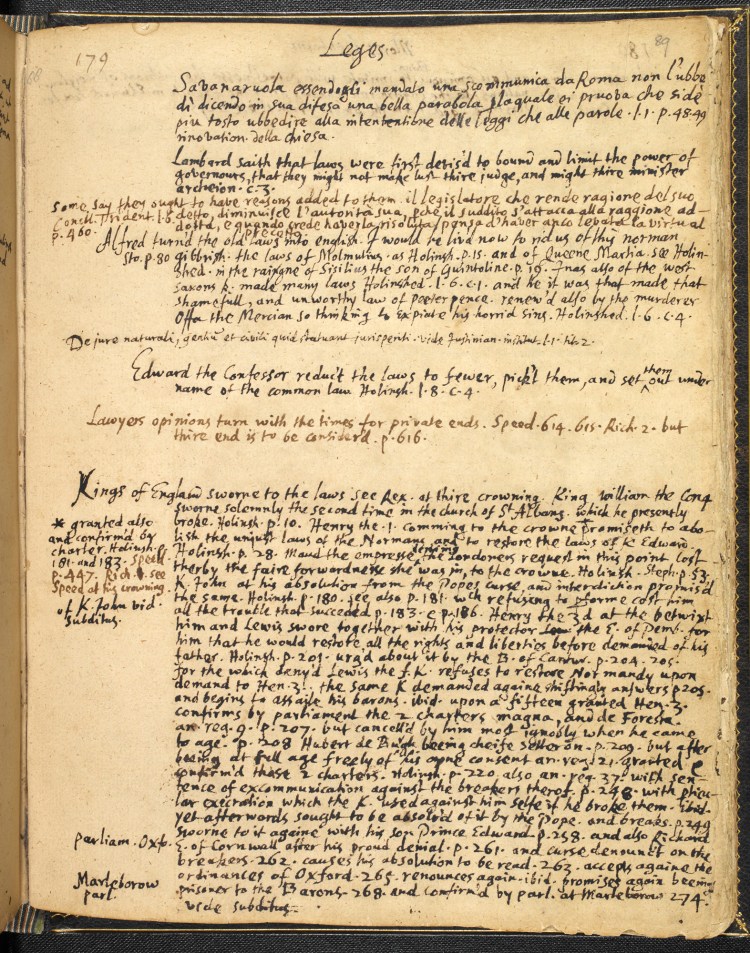 179
Leges
89
Savanaruola essendogli mandato una scommunica da Roma non l'ubbe
di dicendo in sua difesa una bella parabola, p laquale ei pruova che si de
piu tosto ubbedire alla intententione delle leggi che alle parole. l. 1. p. 48. 49
rinovation. della chiesa.
Lombard saith that laws were first devis'd to bound and limit the power of
governours, that they might not make lust thire judge, and might thire minister
archeion. c. 3.
Some say they ought to have reasons added to them. il legislatore che rende ragione del suo
Concil. Trident. l. 6 detto, diminuisce l'autorità sua, pche il suddito s'attacca alla raggione ad-
p. 460. dotta, e quando crede haverla risoluta, pensa d'haver anco levata la virtu al
precetto.
Alfred turnd the old laws into english. I would he livd now to rid us of this norman
Sto. p. 80 gibbrish. the laws of Molmutius. as Holinsh. p. 15. and of Queene Martia. see Holin-
shed. in the raigne of Sisilius the son of Guintoline. p. 19. Inas also of the west
saxons k. made many laws Holinshed. l. 6. c. 1. and he it was that made that
shamefull, and unworthy law of peeter pence. renew'd also by the murderer
Offa the Mercian so thinking to expiate his horrid sins. Holinshed. l. 6. c. 4.
De jure naturali, gentiū et civili quid statuant jurisperiti. vide Justinian. institut. l. 1. tit. 2.
Edward the Confessor reduc't the laws to fewer, pick't them, and set them out under
name of the common law Holinsh. l. 8. c. 4.
Lawyers opinions turn with the times for private ends. Speed. 614. 615. Rich. 2. but
thire end is to be considerd. p. 616.
Kings of England sworne to the laws see Rex. at thire crowning. King William the Conq
sworne solemnly the second time in the church of St Albans. which he presently
broke. Holinsh. p. 10. Henry the. 1. comming to the crowne promiseth to abo-
lish the unjust laws of the Normans, and to restore the laws of K. Edward
Holinsh. p. 28. Maud the empresse denying the Londoners request in this point lost
therby the faire forwardnesse she was in, to the crowne. Holinsh. Steph. p. 53.
* granted also
and confirm'd by
charter. Holinsh. p.
181. and 183. Speed.
p. 447. Rich. 1. see
Speed at his crowning.
of K. John vid.
subditus.
K. John at his absolution from the Popes curse, and interdiction promis'd
the same. Holinsh. p. 180. see also p. 181. wch refusing to pforme cost him
all the trouble that succeeded p. 183. e p. 186. Henry the 3d at the betwixt
him and Lewis swore together with his protector the E. of Pemb. for
him that he would restore all the rights and liberties before demanded of his
father. Holinsh. p. 201. urg'd about it by the B. of Cantur. p. 204. 205.
for the which deny'd Lewis the f. K. refuses to restore Normandy upon
demand to Hen. 3. the same K demanded againe shiftingly answers p 205.
and begins to assaile his barons. ibid. upon a fifteen granted Hen. 3.
confirms by parliament the 2 charters magna, and de Foresta.
an. reg. 9. p. 207. but cancell'd by him most ignobly when he came
to age. p. 208 Hubert de Burgh beeing cheife setter on. p. 209. but after
beeing at full age freely of his owne consent an. reg. 21. granted e
confirm'd these 2 charters. Holinsh. p. 220. also an. reg. 37. with sen-
tence of excommunication against the breakers therof. p. 248. with pticu-
lar execration which the K. used against him selfe if he broke them. ibid.
yet afterwards sought to be absolv'd of it by the Pope. and breaks. p. 249
sworne to it againe with his son Prince Edward. p. 258. and also Richard
parliam. Oxfo. E. of Cornwall after his proud denial. p. 261. and curse denounc't on the
breakers. 262. causes his absolution to be read. 263. accepts againe the
ordinances of Oxford. 265. renounces again. ibid. promises again beeing
Marleborow
parl.
prisoner to the Barons. 268. and confirm'd by parl. at Marleborow 274.
vide subditus.